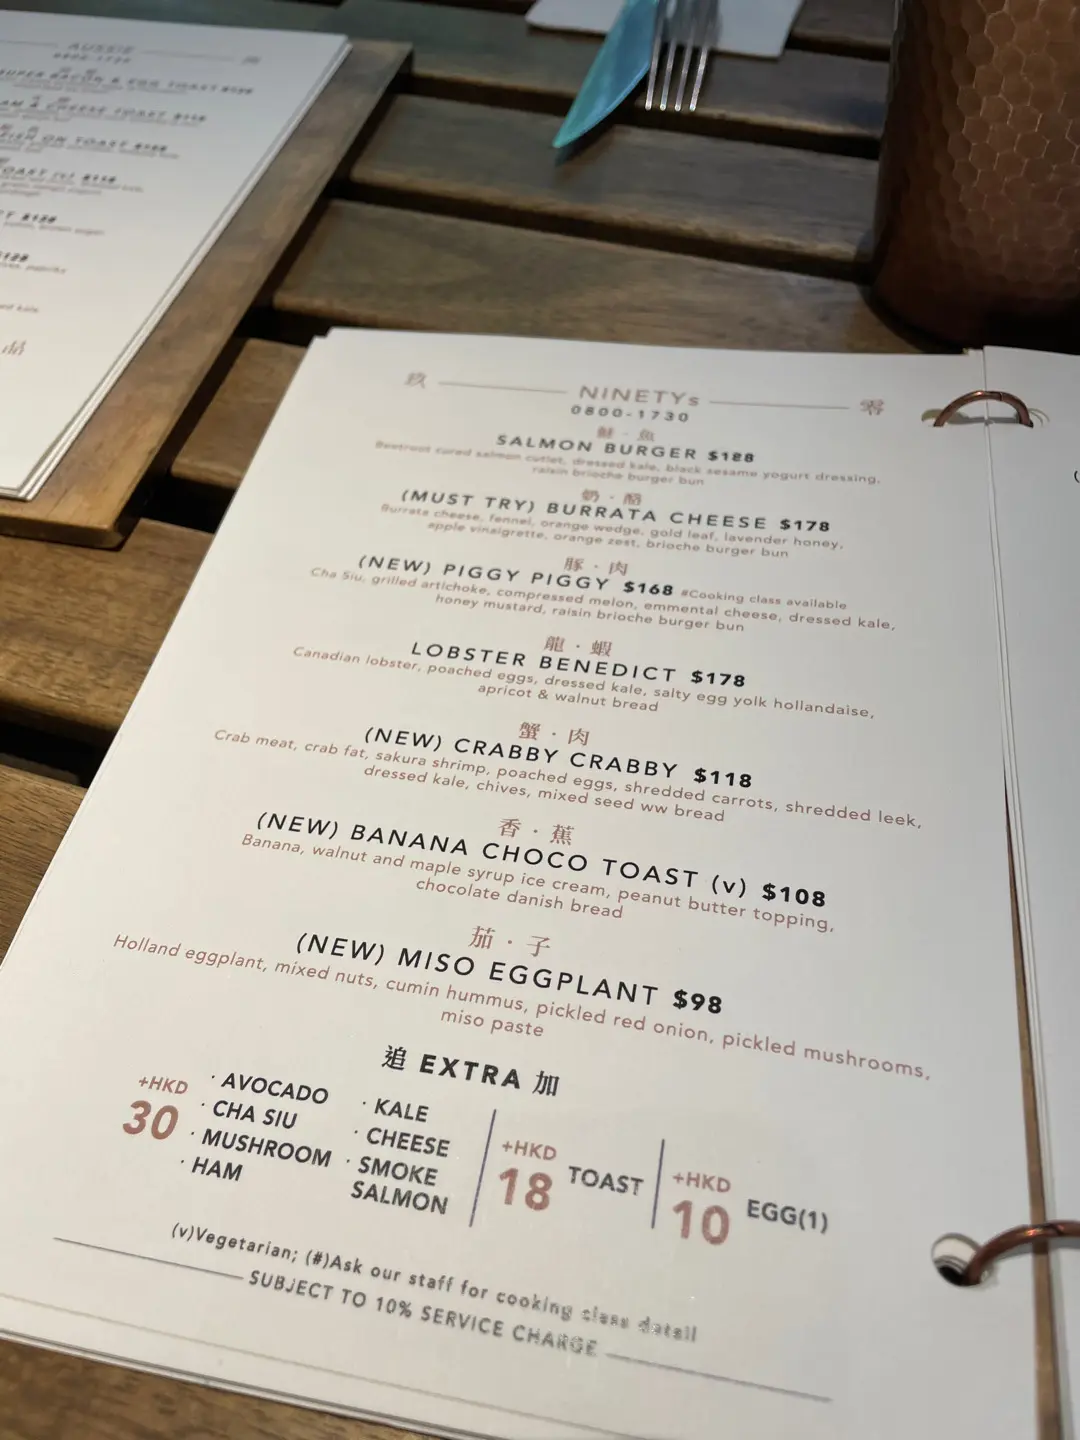 AUSSIE
SUPER BACON & EGG TOAST
& CHEESE TOAST
ON TOAST
品
玖 NINETYs 零
0800-1730
鮭·魚
SALMON BURGER $188
Beetroot cured salmon cutlet, dressed kale, black sesame yogurt dressing,
raisin brioche burger bun
奶·酪
(MUST TRY) BURRATA CHEESE $178
Burrata cheese, fennel, orange wedge, gold leaf, lavender honey,
apple vinaigrette, orange zest, brioche burger bun
豚·肉
(NEW) PIGGY PIGGY $168 #Cooking class available
Cha Siu, grilled artichoke, compressed melon, emmental cheese, dressed kale,
honey mustard, raisin brioche burger bun
龍·蝦
LOBSTER BENEDICT $178
Canadian lobster, poached eggs, dressed kale, salty egg yolk hollandaise,
apricot & walnut bread
蟹·肉
(NEW) CRABBY CRABBY $118
Crab meat, crab fat, sakura shrimp, poached eggs, shredded carrots, shredded leek,
dressed kale, chives, mixed seed ww bread
香·蕉
(NEW) BANANA CHOCO TOAST (v) $108
Banana, walnut and maple syrup ice cream, peanut butter topping,
chocolate danish bread
茄·子
(NEW) MISO EGGPLANT $98
Holland eggplant, mixed nuts, cumin hummus, pickled red onion, pickled mushrooms,
miso paste
追 EXTRA 加
+HKD
30
· AVOCADO
· CHA SIU
· MUSHROOM
· HAM
· KALE
· CHEESE
· SMOKE
SALMON
+HKD
18
TOAST
+HKD
10
EGG(1)
(v)Vegetarian; (#)Ask our staff for cooking class detail
SUBJECT TO 10% SERVICE CHARGE